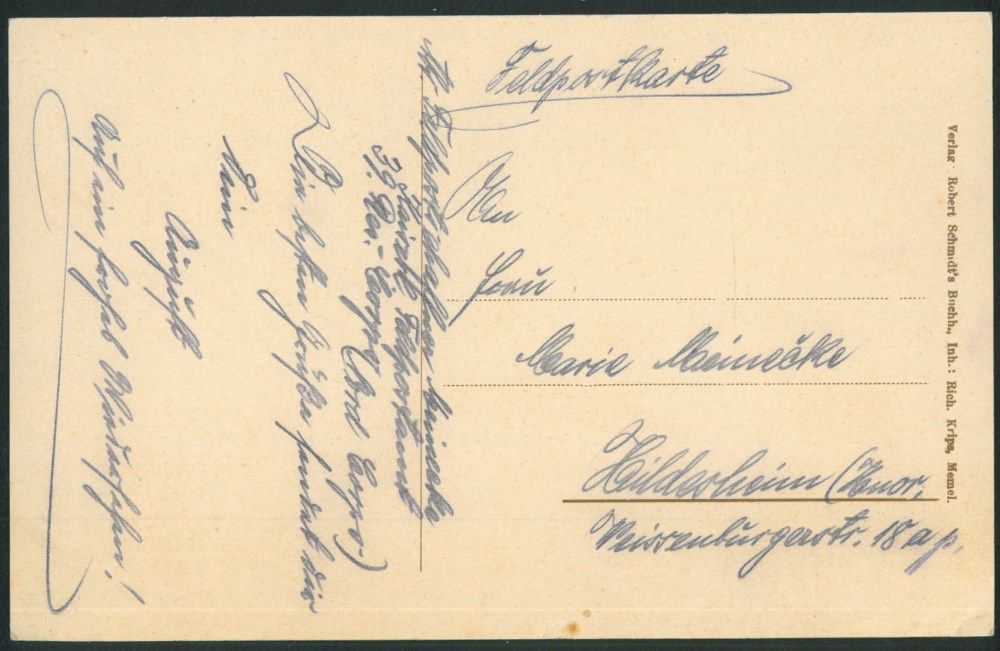 Feldpostkarte
An
Frau
Marie Meinecke
Hildesheim (Hnov.
Weissenburgerstr. 18 a p.
Verlag Robert Schmidt's Buchh., Inh.: Rich. Krips, Memel.
Feldpostschaffner Meinecke
Kaiserl. Feldpostamt
39. Res.-Corps
Die besten Grüße sendet dir
Dein
August
Auf ein frohes Wiedersehen!